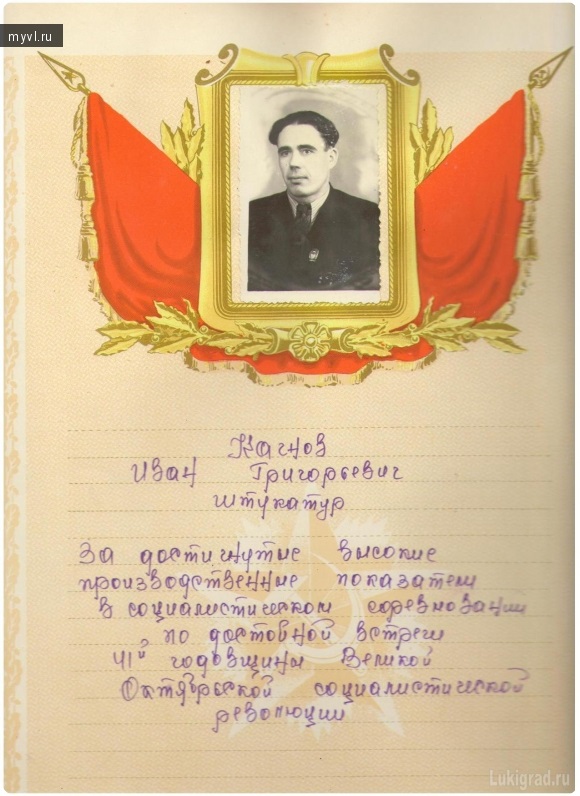 myvl.ru
Качнов
Иван Григорьевич
штукатур
За достигнутые высокие
производственные показатели
в социалистическом соревновании
по достойной встречи
41й годовщины Великой
Октябрьской социалистической
революции
Lukigrad.ru